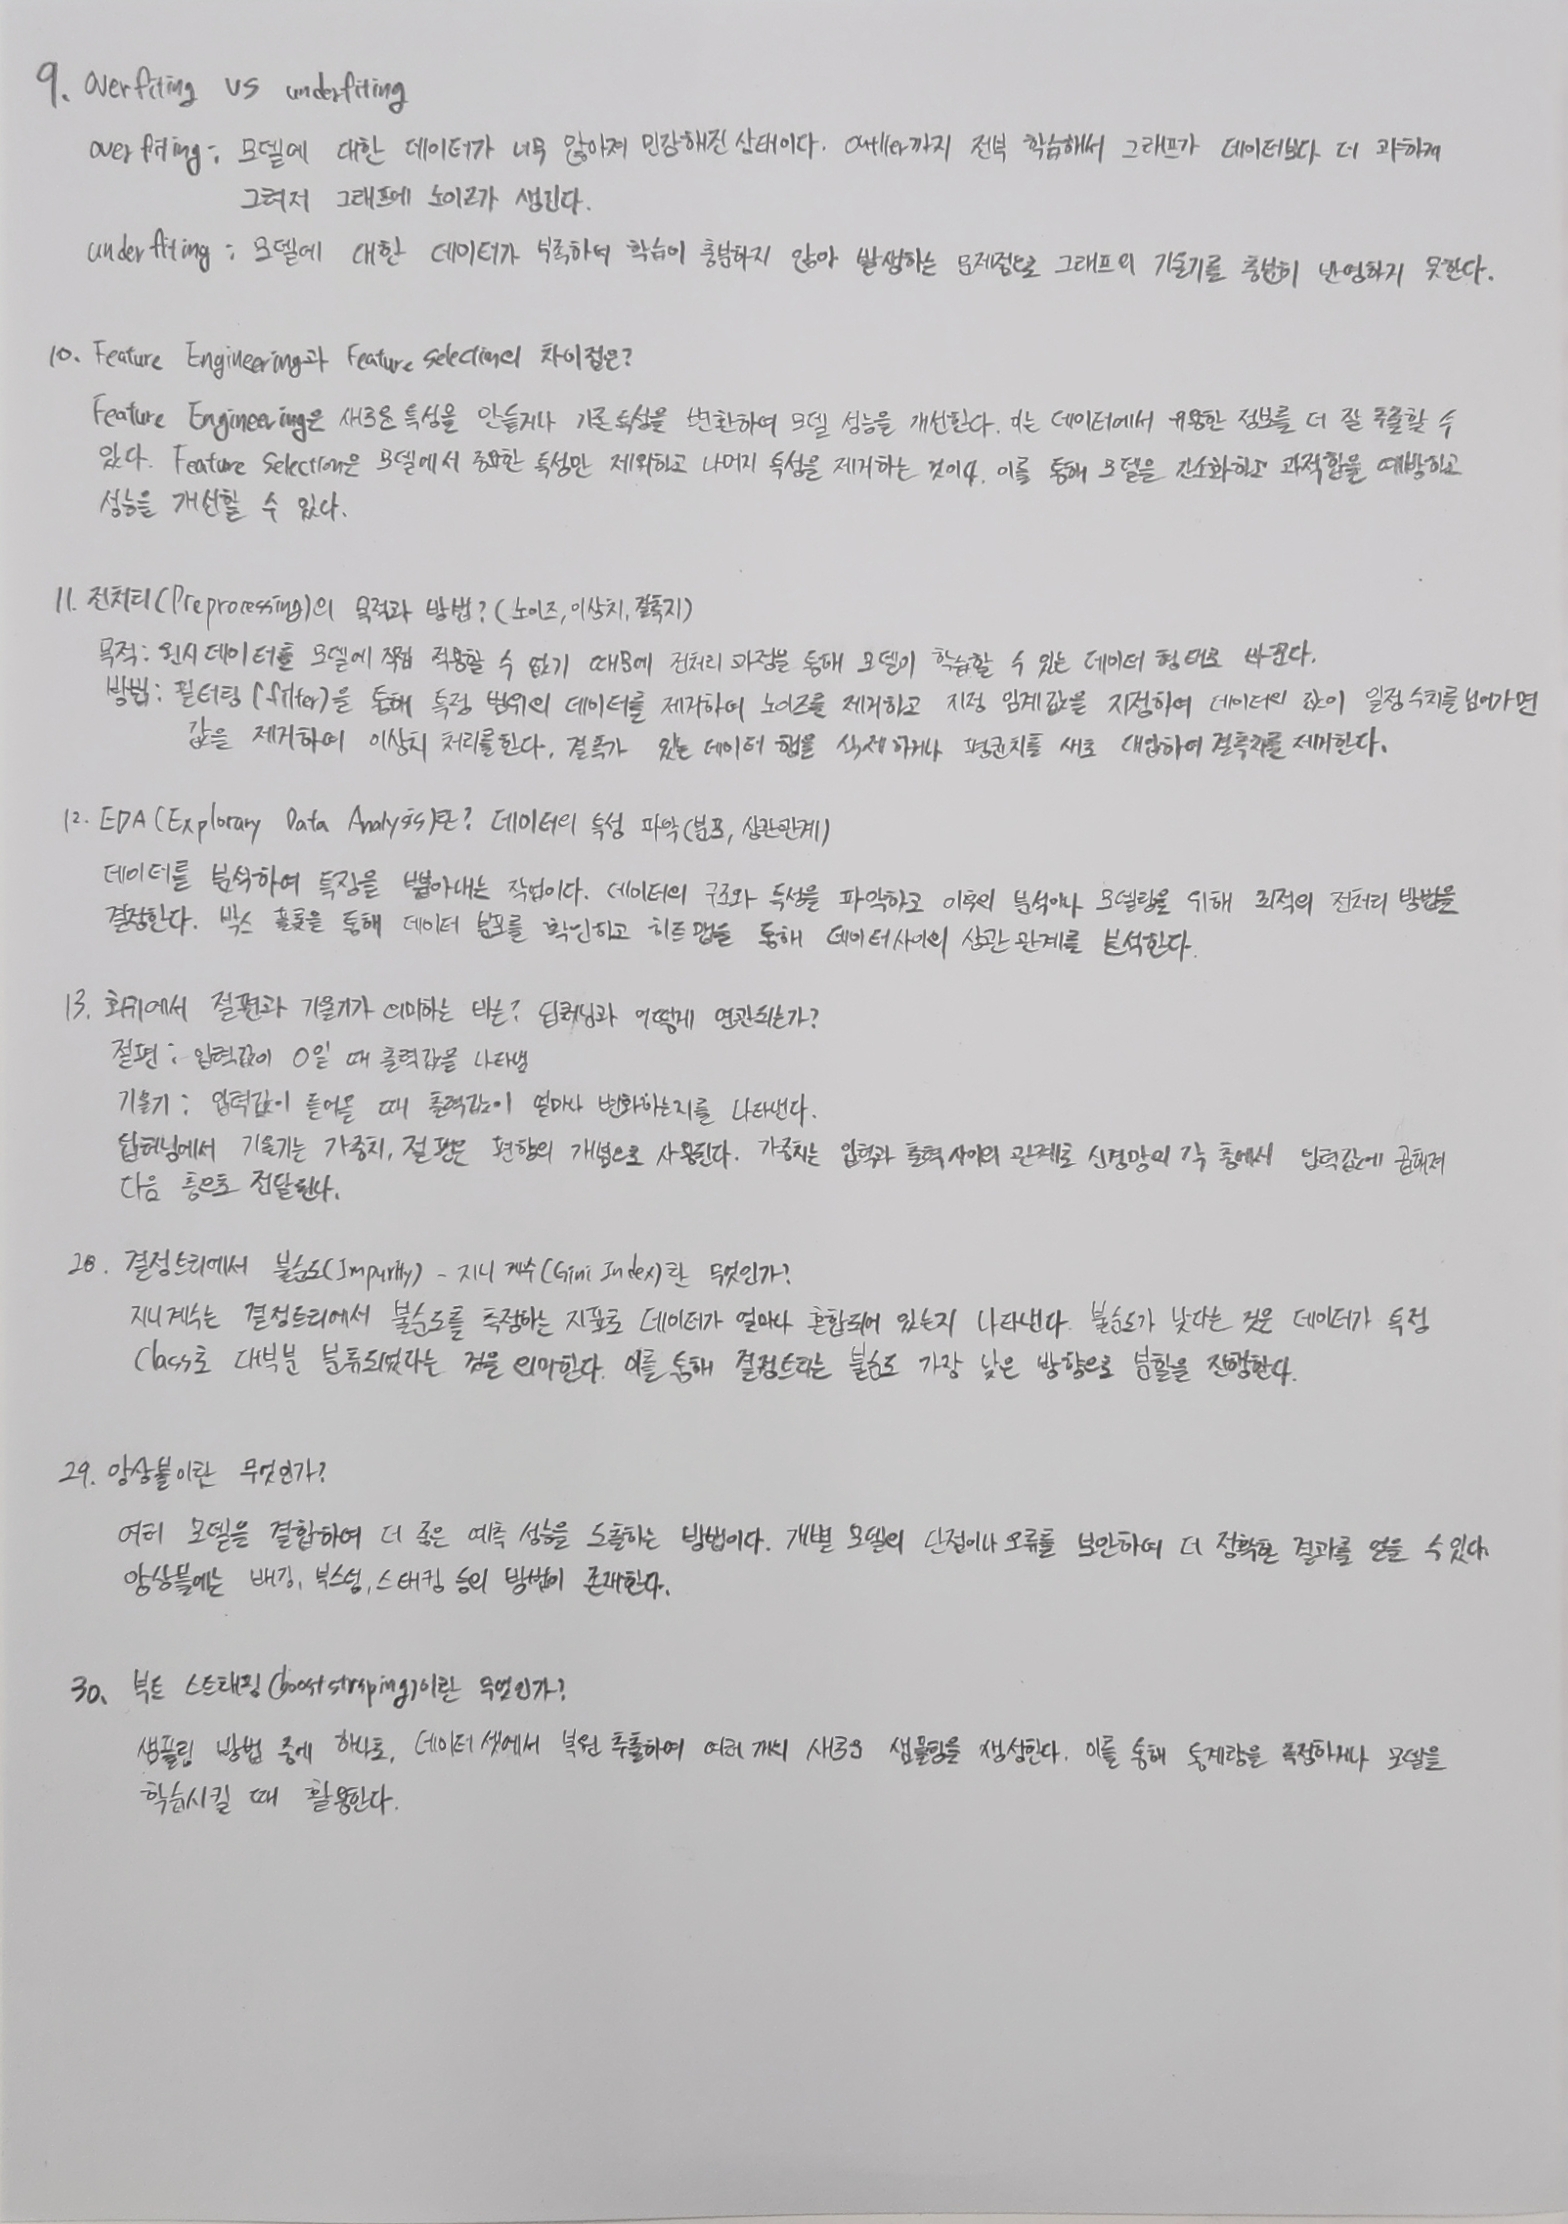 9. Overfiting vs underfiting
overfiting : 모델에 대한 데이터가 너무 많아져 민감해진 상태이다. Outlier까지 전부 학습해서 그래프가 데이터보다 더 과하게
그려저 그래프에 노이즈가 생긴다.
underfiting : 모델에 대한 데이터가 부족하여 학습이 충분하지 않아 발생하는 문제점으로 그래프의 기울기를 충분히 반영하지 못한다.
10. Feature Engineering과 Feature Selection의 차이점은?
Feature Engineering은 새로운 특성을 만들거나 기존 특성을 변환하여 모델 성능을 개선한다. 이는 데이터에서 유용한 정보를 더 잘 추출할 수
있다. Feature Selection은 모델에서 중요한 특성만 제외하고 나머지 특성을 제거하는 것이다. 이를 통해 모델을 간소화하고 과적합을 예방하고
성능을 개선할 수 있다.
11. 전처리(Preprocessing)의 목적과 방법? (노이즈, 이상치, 결측치)
목적 : 원시 데이터를 모델에 직접 적용할 수 없기 때문에 전처리 과정을 통해 모델이 학습할 수 있는 데이터 형태로 바꾼다.
방법 : 필터링(filter)을 통해 특정 범위의 데이터를 제거하여 노이즈를 제거하고 지정 임계값을 지정하여 데이터의 값이 일정 수치를 넘어가면
값을 제거하여 이상치 처리를 한다. 결측가 있는 데이터 행을 삭제하거나 평균치를 새로 대입하여 결측치를 제거한다.
12. EDA(Explorary Data Analysis)란? 데이터의 특성 파악(분포, 상관관계)
데이터를 분석하여 특징을 뽑아내는 작업이다. 데이터의 구조와 특성을 파악하고 이후의 분석이나 모델링을 위해 최적의 전처리 방법을
결정한다. 박스 플롯을 통해 데이터 분포를 확인하고 히트맵을 통해 데이터 사이의 상관 관계를 분석한다.
13. 회귀에서 절편과 기울기가 의미하는 바는? 딥러닝과 어떻게 연관되는가?
절편 : 입력값이 0일 때 출력값을 나타냄
기울기 : 입력값이 들어올 때 출력값이 얼마나 변화하는지를 나타낸다.
딥러닝에서 기울기는 가중치, 절편은 편향의 개념으로 사용된다. 가중치는 입력과 출력 사이의 관계로 신경망의 각 층에서 입력값에 곱해져
다음 층으로 전달된다.
28. 결정트리에서 불순도(Impurity) - 지니 계수(Gini Index)란 무엇인가?
지니계수는 결정트리에서 불순도를 측정하는 지표로 데이터가 얼마나 혼합되어 있는지 나타낸다. 불순도가 낮다는 것은 데이터가 특정
Class로 대부분 분류되었다는 것을 의미한다. 이를 통해 결정트리는 불순도 가장 낮은 방향으로 분할을 진행한다.
29. 앙상블이란 무엇인가?
여러 모델을 결합하여 더 좋은 예측 성능을 도출하는 방법이다. 개별 모델의 단점이나 오류를 보안하여 더 정확한 결과를 얻을 수 있다.
앙상블에는 배깅, 부스팅, 스태킹 등의 방법이 존재한다.
30. 부트 스트래핑(bootstraping)이란 무엇인가?
샘플링 방법 중에 하나로, 데이터 셋에서 복원 추출하여 여러 개의 새로운 샘플링을 생성한다. 이를 통해 통계량을 측정하거나 모델을
학습시킬 때 활용한다.